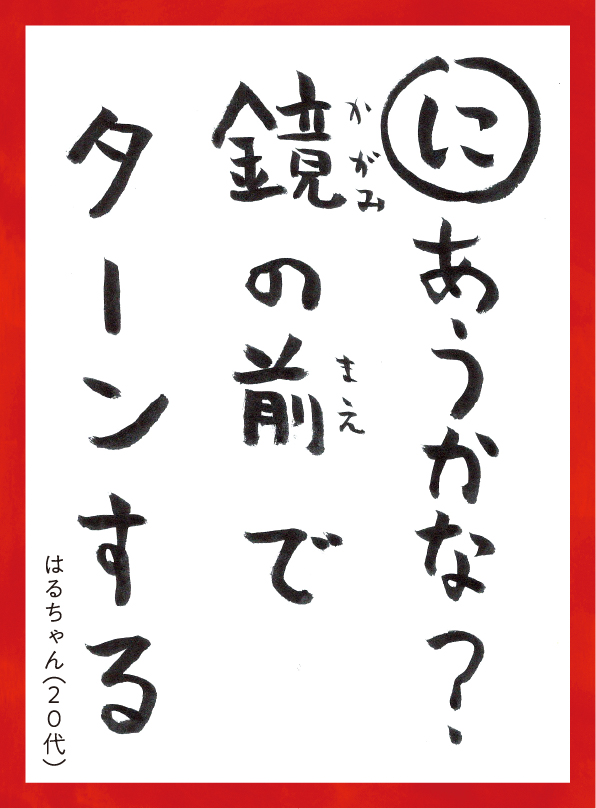 にあうかな？
かがみ
鏡の前で
まえ
ターンする
はるちゃん（20代）